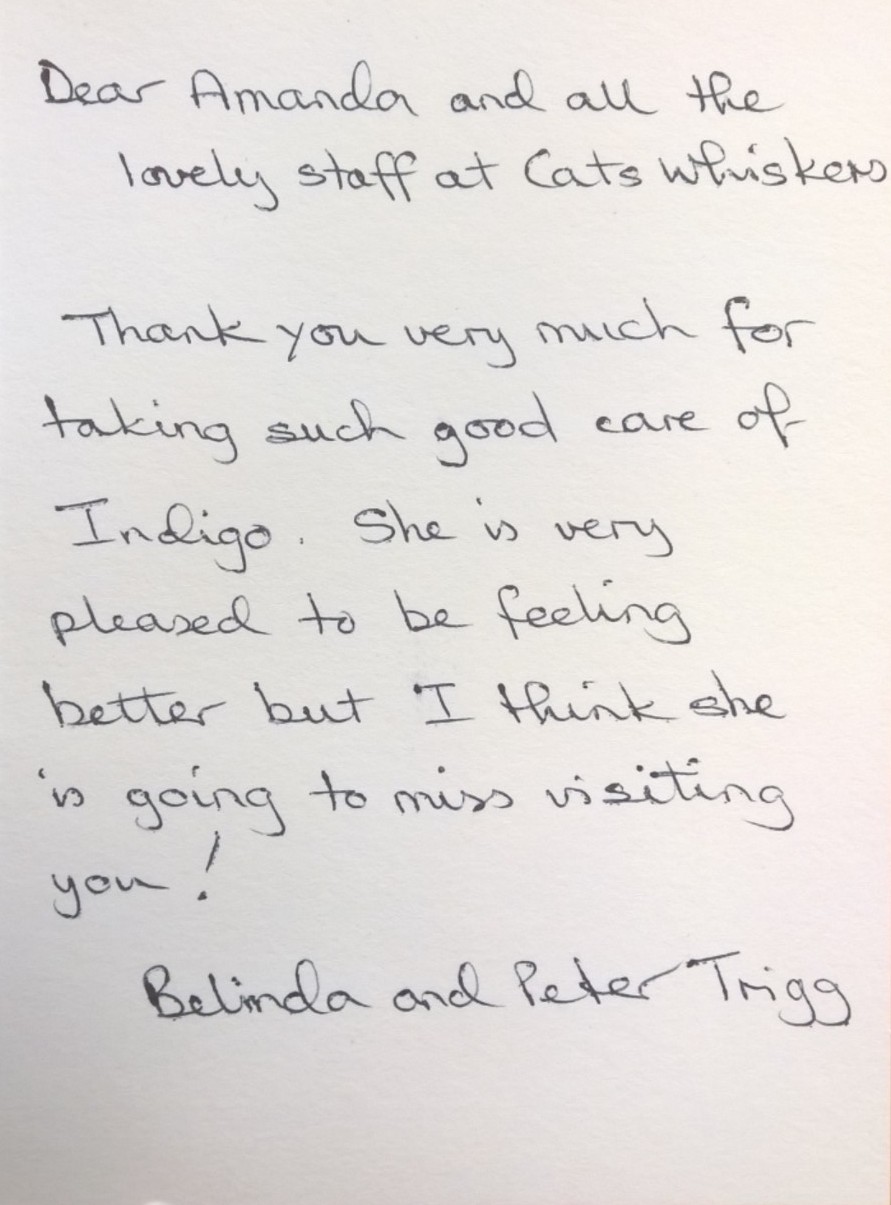 Dear Amanda and all the
lovely staff at Cats Whiskers
Thank you very much for
taking such good care of
Indigo. She is very
pleased to be feeling
better but I think she
is going to miss visiting
you!
Belinda and Peter Trigg